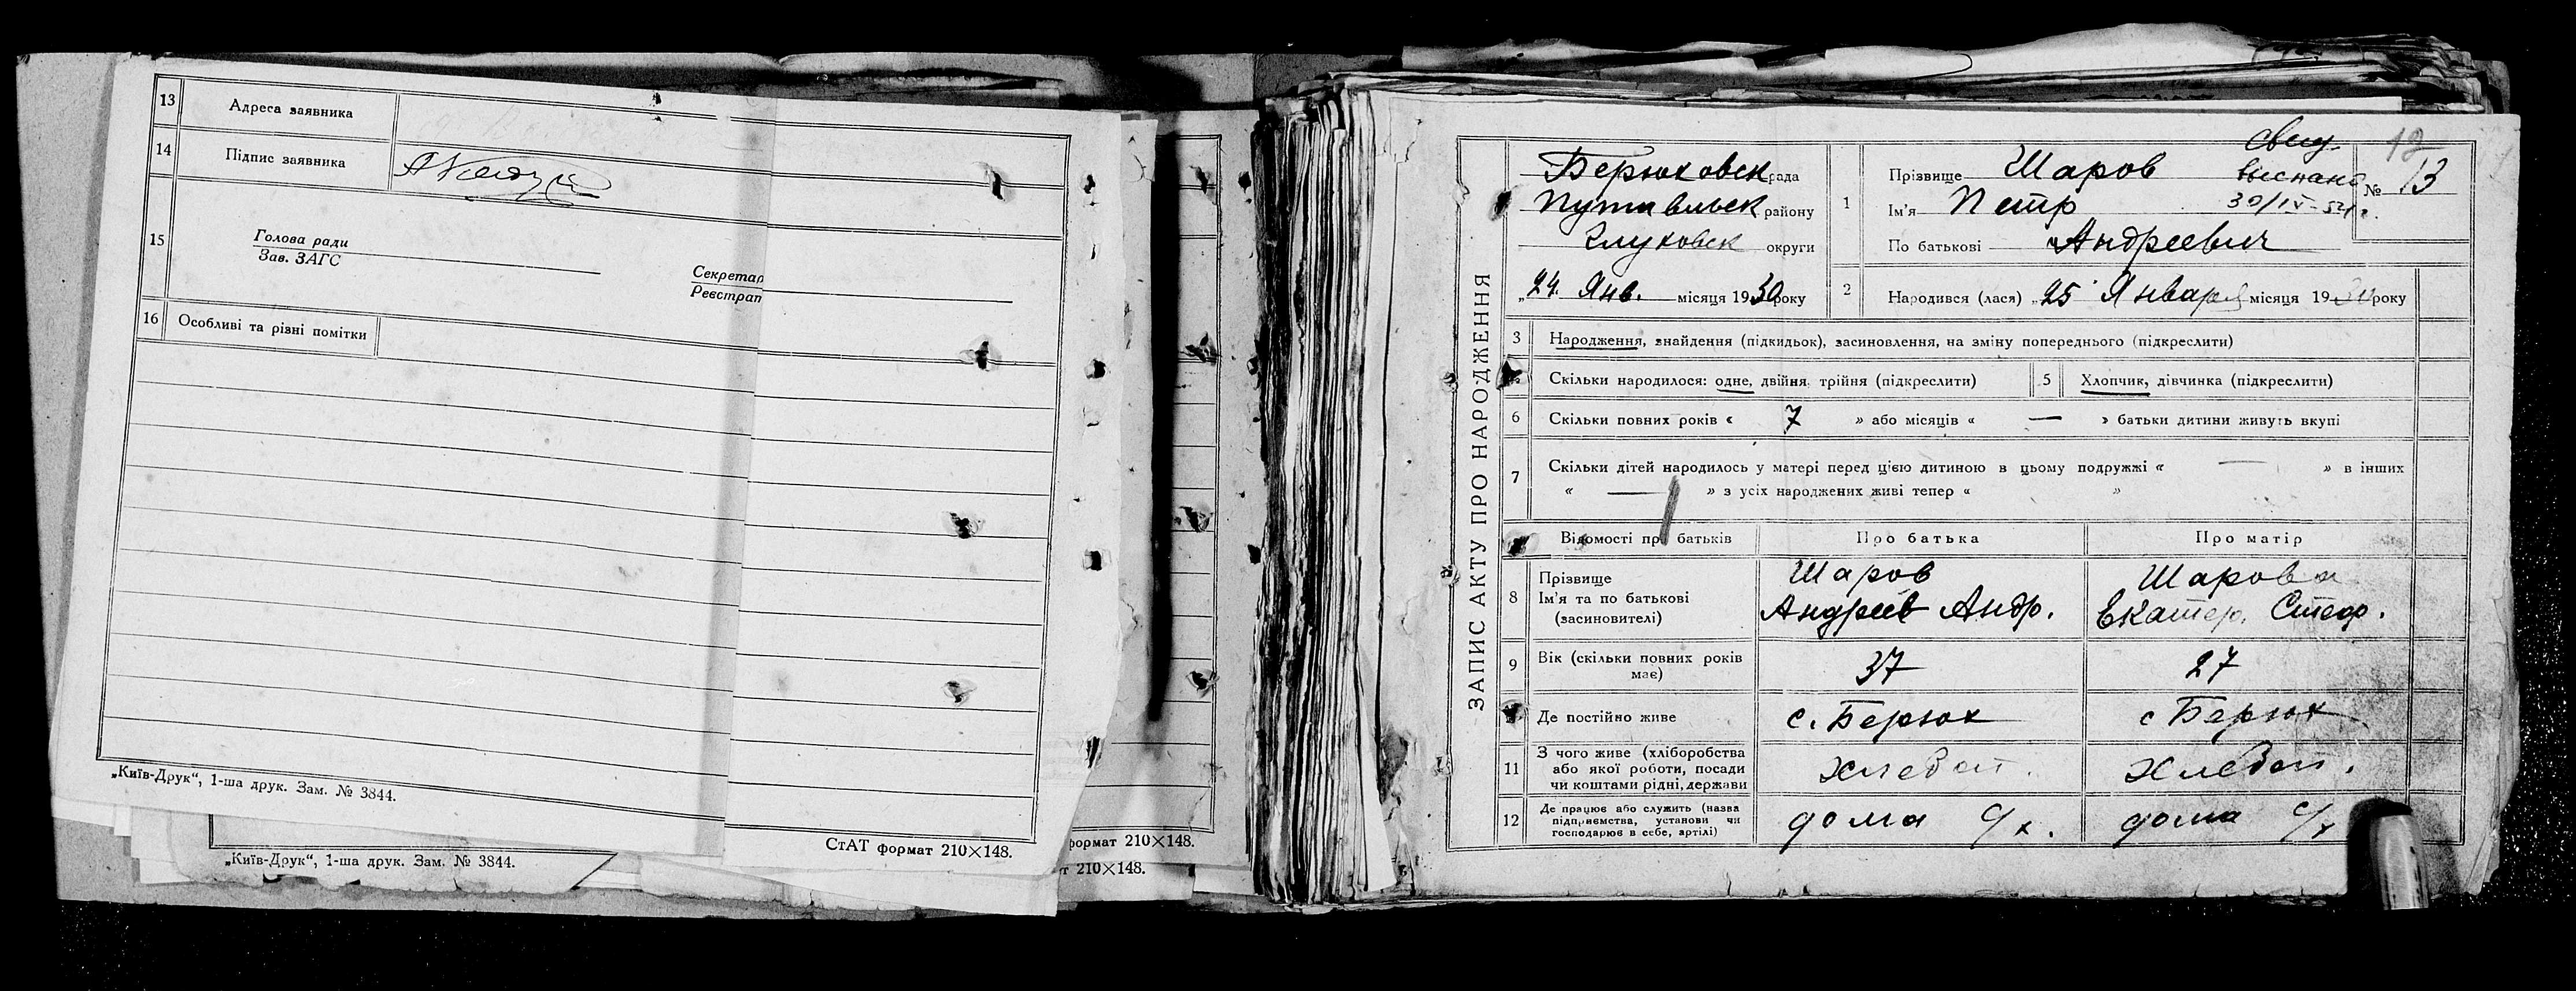 13 Адреса заявника
14 Підпис заявника
15 Голова ради
Зав. ЗАГС
Секретар
Реєстрат
16 Особливі та різні помітки
„Київ-Друк“, 1-ша друк. Зам. № 3844.
СтАТ формат 210×148.
„Київ-Друк“, 1-ша друк. Зам. № 3844.
формат 210×148.
т 210×148.
ЗАПИС АКТУ ПРО НАРОДЖЕННЯ
Берюховск рада
Путивльск району
Глуховск округи
„24. Янв. місяця 1930 року
1 Прізвище Шаров
Ім'я Петр
По батькові Андреевич
Свид.
выслано
30/IX-54 г.
12
№ 13
2 Народився (лася) „25" Января місяця 1930 року
3 Народження, знайдення (підкидьок), засиновлення, на зміну попереднього (підкреслити)
Скільки народилося: одне, двійня, трійня (підкреслити)
5 Хлопчик, дівчинка (підкреслити)
6 Скільки повних років « 7 » або місяців « — » батьки дитини живуть вкупі
7 Скільки дітей народилось у матері перед цією дитиною в цьому подружжі « — » в інших
« — » з усіх народжених живі тепер « »
Відомості про батьків Про батька Про матір
8 Прізвище Шаров Шарова
Ім'я та по батькові Андреев Андр. Екатер. Стеф.
(засиновителі)
9 Вік (скільки повних років має) 37 27
Де постійно живе с. Берюх с Берюх
11 З чого живе (хліборобства або якої роботи, посади чи коштами рідні, держави хлебоп. хлебоп.
12 Де працює або служить (назва підприємства, установи чи господарює в себе, артілі) дома с/х. дома с/х